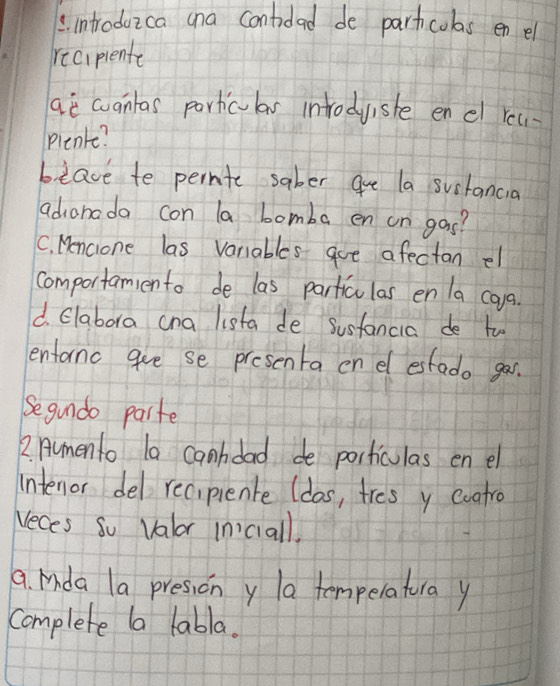 1. introduzca una cantidad de particulas en el
recipiente
a¿ cuántas partículas introdujiste en el reci-
piente?
b¿qué te permite saber que la sustancia
adionada con la bomba en un gas?
C. Mencione las variables que afectan el
comportamiento de las partículas en la caja.
d. Elabora una lista de sustancia de tu
entorno que se presenta en el estado gas.
Segundo parte
2. Aumento la cantidad de partículas en el
interior del recipiente (dos, tres y cuatro
veces su valor inicial).
a. Mida la presión y la temperatura y
complete la tabla.